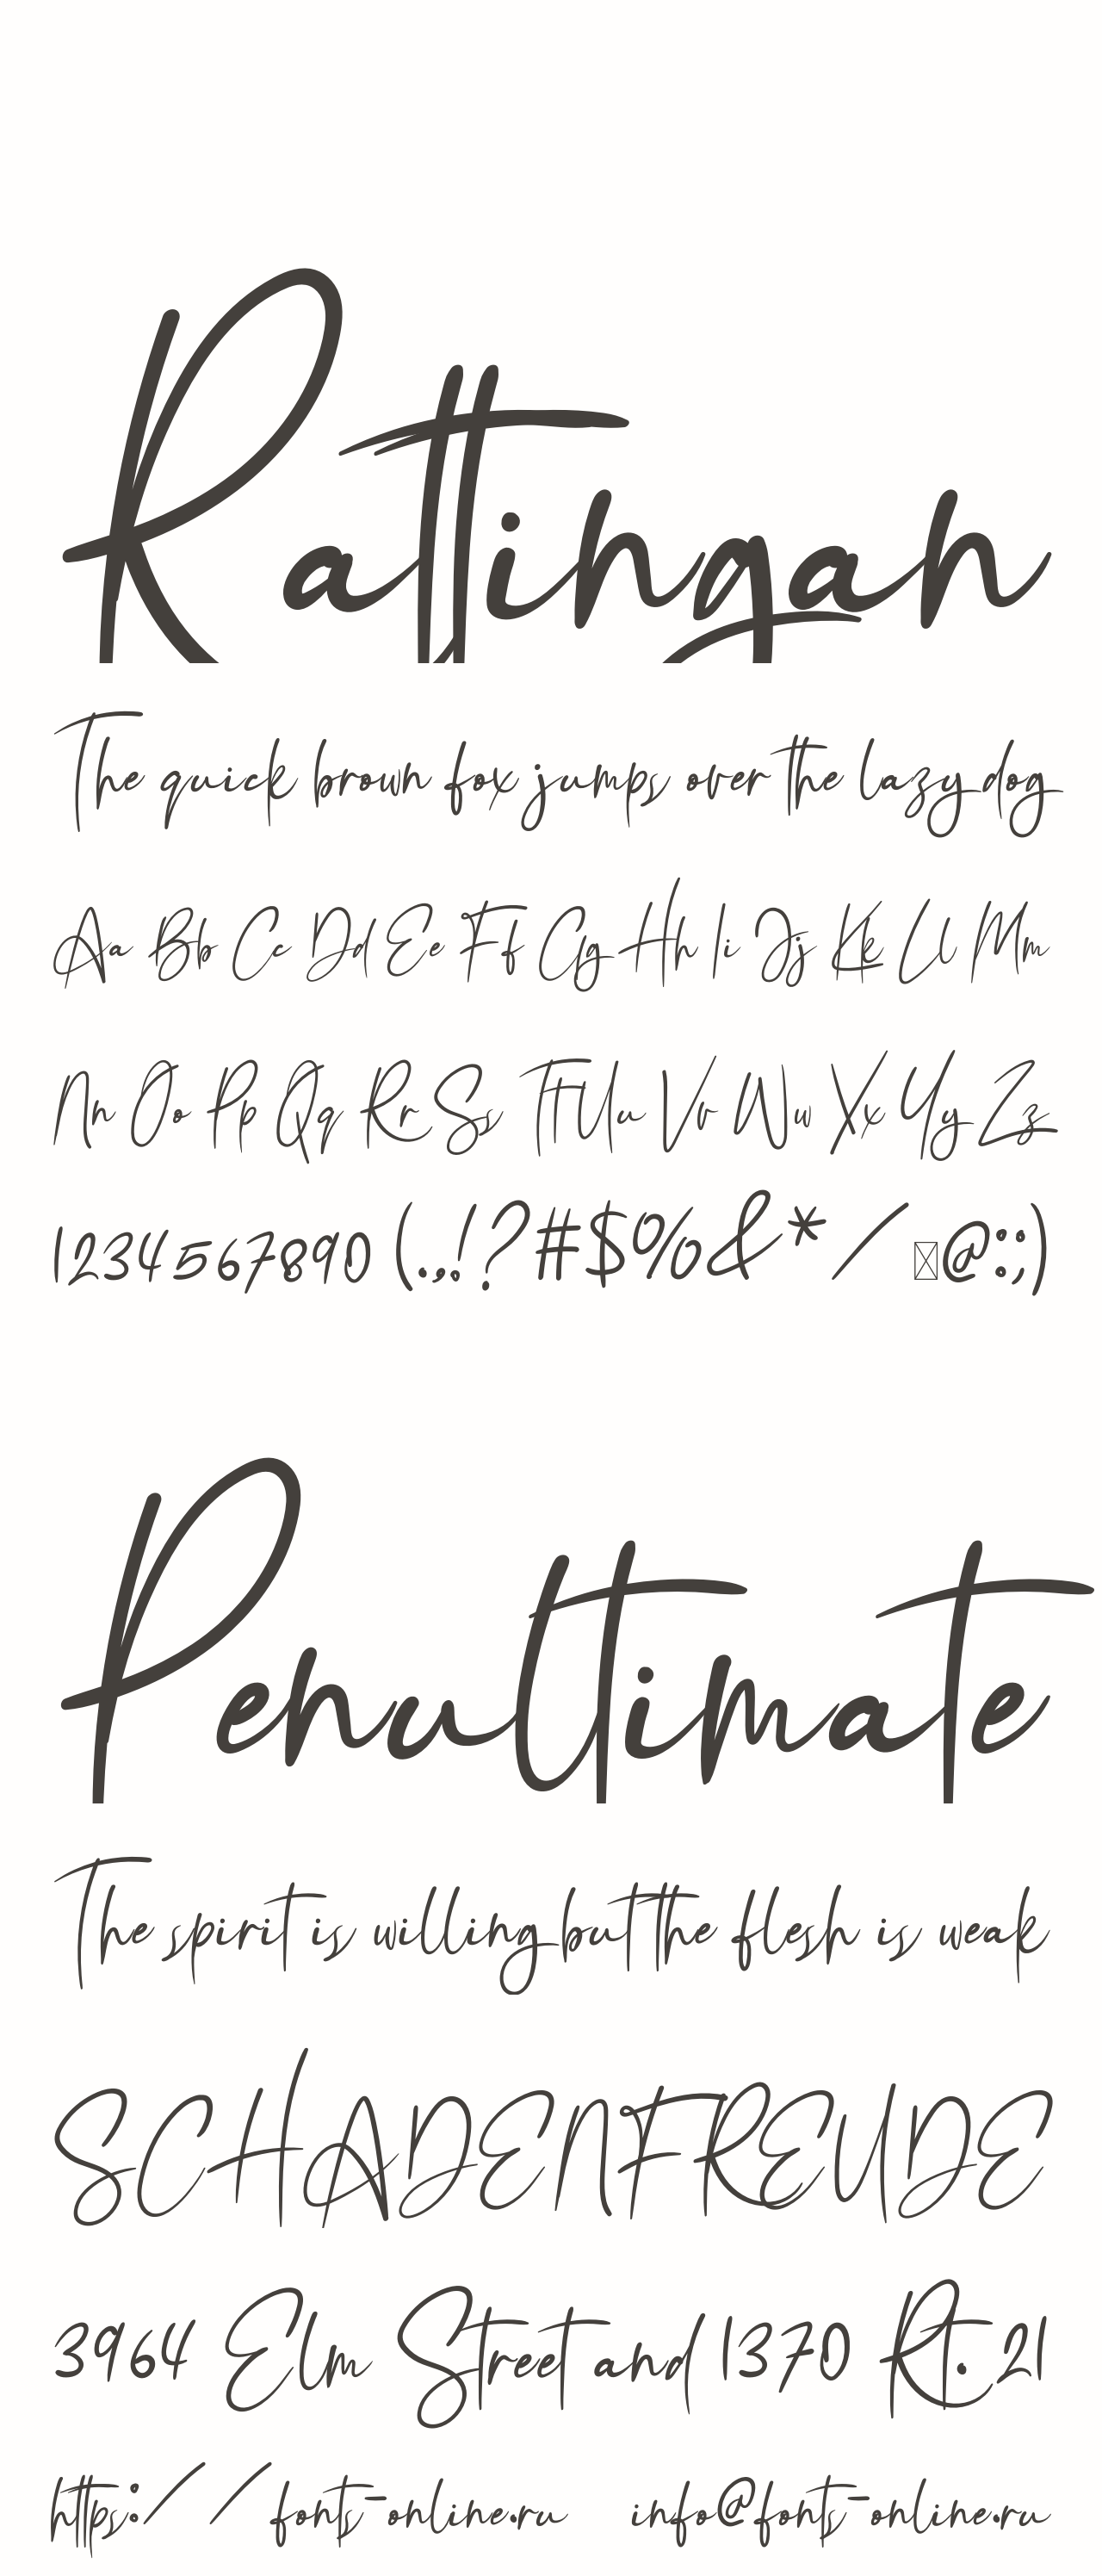 Rattingan
The quick brown fox jumps over the lazy dog
Aa Bb Cc Dd Ee Ff Gg Hh Ii Jj Kk Ll Mm
Nn Oo Pp Qq Rr Ss Tt Uu Vv Ww Xx Yy Zz
1234567890 (.,!?#$%&*/ @:;)
Penultimate
The spirit is willing but the flesh is weak
SCHADENFREUDE
3964 Elm Street and 1370 Rt. 21
https://fonts-online.ru info@fonts-online.ru